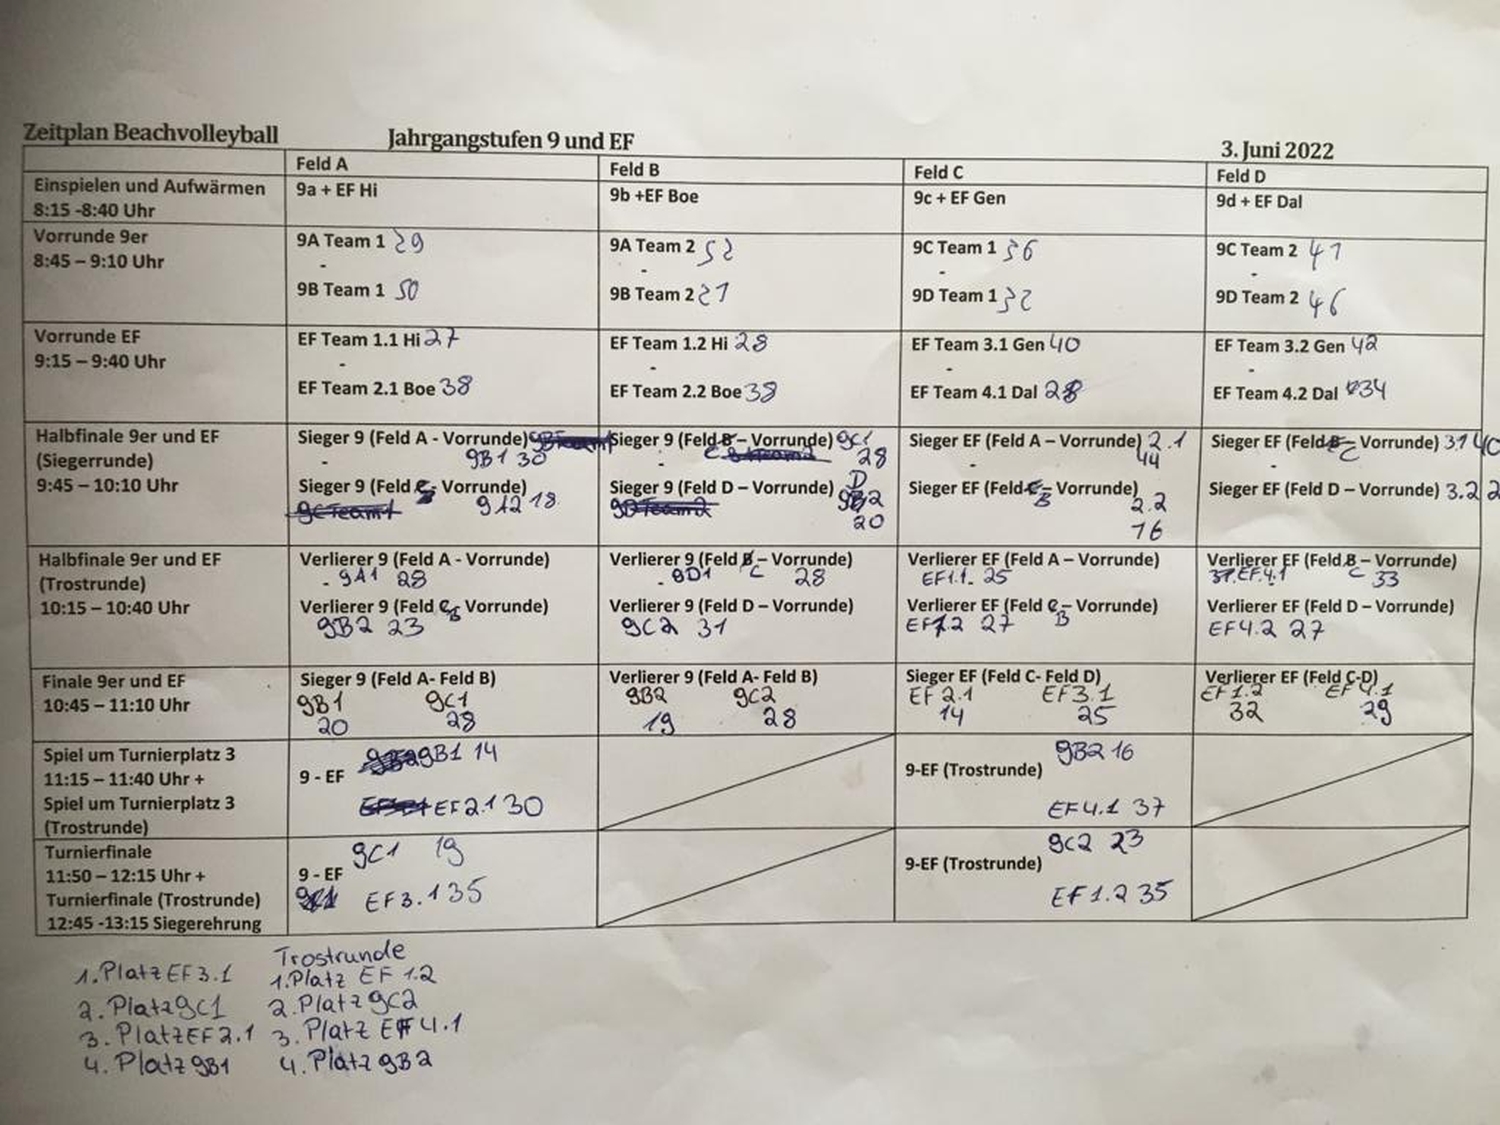 Zeitplan Beachvolleyball Jahrgangstufen 9 und EF 3. Juni 2022
Feld A Feld B Feld C Feld D
Einspielen und Aufwärmen 9a + EF Hi 9b +EF Boe 9c + EF Gen 9d + EF Dal
8:15 -8:40 Uhr
Vorrunde 9er 9A Team 1 29 9A Team 2 52 9C Team 1 36 9C Team 2 41
8:45 – 9:10 Uhr - - - -
9B Team 1 50 9B Team 2 21 9D Team 1 32 9D Team 2 46
Vorrunde EF EF Team 1.1 Hi 27 EF Team 1.2 Hi 28 EF Team 3.1 Gen 40 EF Team 3.2 Gen 42
9:15 – 9:40 Uhr - - - -
EF Team 2.1 Boe 38 EF Team 2.2 Boe 38 EF Team 4.1 Dal 28 EF Team 4.2 Dal 34
Halbfinale 9er und EF Sieger 9 (Feld A - Vorrunde) Sieger 9 (Feld B – Vorrunde) 9C1 Sieger EF (Feld A – Vorrunde) 2.1 Sieger EF (Feld B – Vorrunde) 31 40
(Siegerrunde) - 9B1 30 - C 28 - 44 - C
9:45 – 10:10 Uhr Sieger 9 (Feld C – Vorrunde) Sieger 9 (Feld D – Vorrunde) D Sieger EF (Feld C – Vorrunde) Sieger EF (Feld D – Vorrunde) 3.2 2
9C Team 1 9A2 18 9D Team 2 2 B 2.2
20 16
Halbfinale 9er und EF Verlierer 9 (Feld A - Vorrunde) Verlierer 9 (Feld B – Vorrunde) Verlierer EF (Feld A – Vorrunde) Verlierer EF (Feld B – Vorrunde)
(Trostrunde) - 9A1 28 - 9D1 C 28 EF1.1. 25 EF.4.1 C 33
10:15 – 10:40 Uhr Verlierer 9 (Feld C B Vorrunde) Verlierer 9 (Feld D – Vorrunde) Verlierer EF (Feld C – Vorrunde) Verlierer EF (Feld D – Vorrunde)
9B2 23 9C2 31 EF1.2 27 B EF4.2 27
Finale 9er und EF Sieger 9 (Feld A- Feld B) Verlierer 9 (Feld A- Feld B) Sieger EF (Feld C- Feld D) Verlierer EF (Feld C-D)
10:45 – 11:10 Uhr 9B1 9C1 9B2 9C2 EF 2.1 EF3.1 EF 1.2 EF 4.1
20 28 19 28 14 25 32 29
Spiel um Turnierplatz 3 9B1 14 9B2 16
11:15 – 11:40 Uhr + 9 - EF 9-EF (Trostrunde)
Spiel um Turnierplatz 3 EF2.1 30 EF4.1 37
(Trostrunde)
Turnierfinale 9C1 19 9C2 23
11:50 – 12:15 Uhr + 9 - EF 9-EF (Trostrunde)
Turnierfinale (Trostrunde) EF3.1 35 EF1.2 35
12:45 -13:15 Siegerehrung
Trostrunde
1. Platz EF3.1 1. Platz EF 1.2
2. Platz 9C1 2. Platz 9C2
3. Platz EF2.1 3. Platz EF 4.1
4. Platz 9B1 4. Platz 9B2